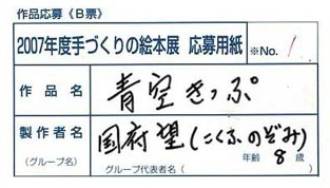 作品応募《B票》
2007年度手づくりの絵本展 応募用紙 ※No. 1
作品名 青空きっぷ
製作者名 国府望(こくふのぞみ)
(グループ名) グループ代表者名( ) 年齢 8 歳